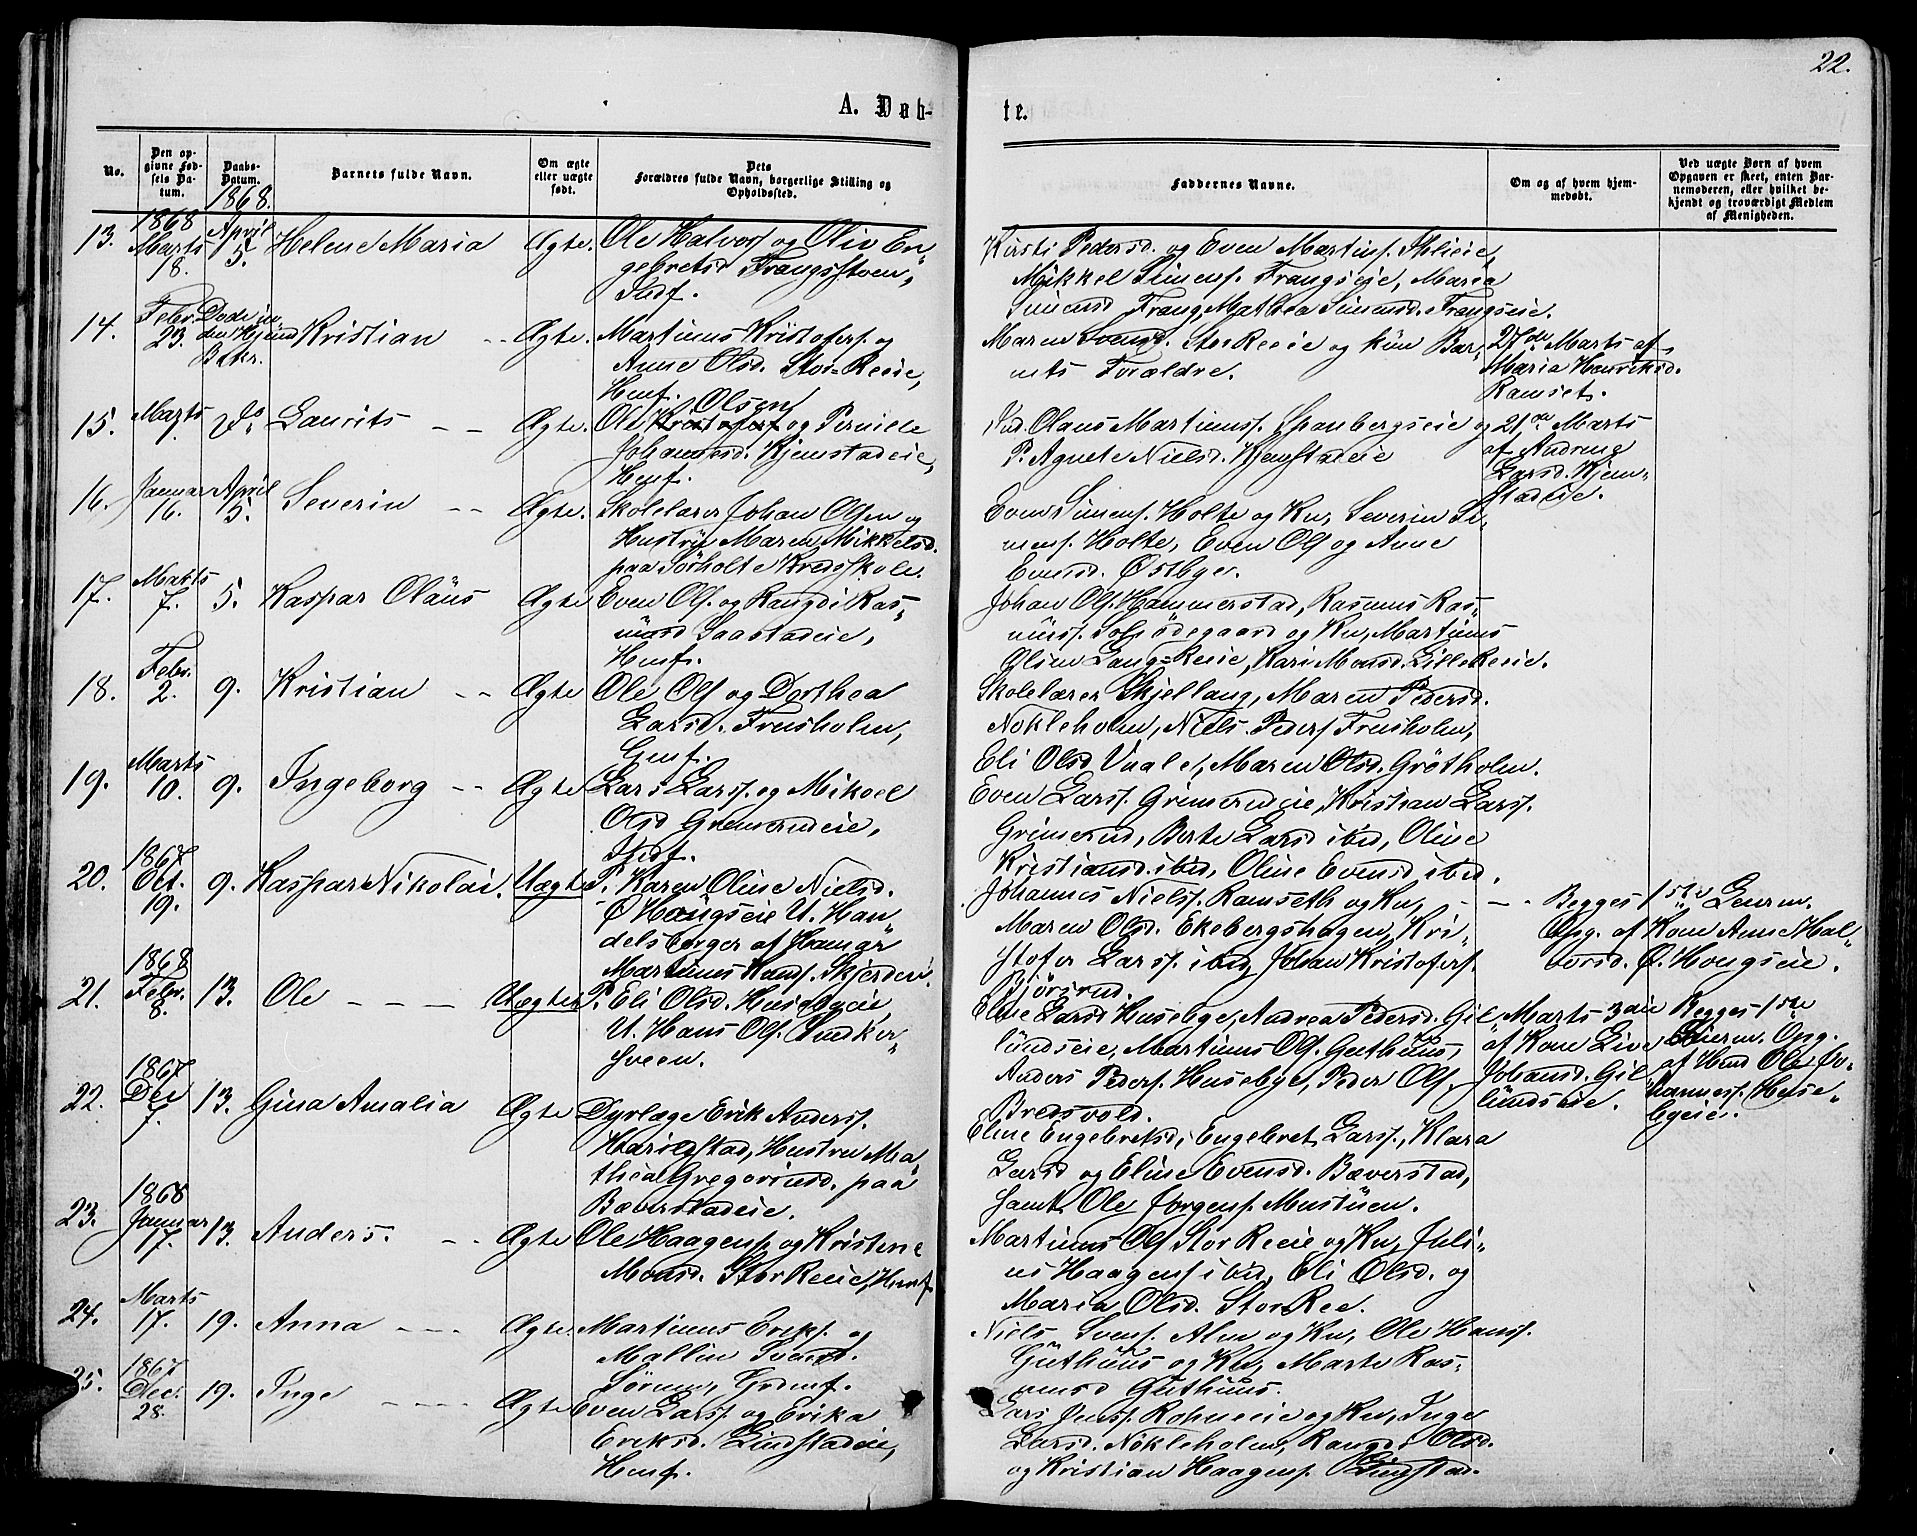 22.
A. Døb-
te.
No.
Den op-
givne Fød-
sels Da-
tum.
Daabs-
Datum.
1868.
Barnets fulde Navn.
Om ægte
eller uægte
født.
Dets
Forældres fulde Navn, borgerlige Stilling og
Opholdssted.
Faddernes Navne.
Om og af hvem hjem-
medøbt.
Ved uægte Børn af hvem
Opgaven er skeet, enten Bar-
nemoderen, eller hvilket be-
kjendt og troværdigt Medlem
af Menigheden.
13.
1868
Marts
18.
April
5.
Helene Maria
Ægte.
Ole Halvors og Oliv En-
gebretsd Frangsstuen,
Indf.
Kirsti Pedersd. og Even Martinsf.
Mikkel Simensf. Frangseie, Maria
Simensd Frang, Mathea Simensd. Frangseie.
14.
Febr.
23.
Døde in
den Kjend
Bekr.
Kristian
Ægte.
Martinus Kristofersf. og
Anne Olsd. Stor-Reeie,
Husf.
Maren Svensd. StorReeie og kun Bar-
nets Forældre.
27de Marts af
Maria Henriksd.
Ramset.
15.
Marts
Do.
Laurits
Ægte.
Olsen
Ole Kristofersf og Pernille
Johannesd. Kjemstadeie,
Husf.
Olaus Martinussf. Spanbergseie og
P. Agnete Nielsd. Kjemstadeie
21de Marts
af Andrine
Larsd. Kjem-
stadeie.
16.
Januar
16.
April
5.
Severin
Ægte.
Skolelærer Johan Olsen og
Hustru Maren Mikkelsd.
paa Sörholte Kredsskole.
Even Simensf. Holte og Kn, Severin Si-
mensf. Holte, Even Olsf og Anne
Evensd. Østbye.
17.
Marts
7.
5.
Kaspar Olaus
Ægte
Even Olsf. og Rangdi Ras-
musd Saastadeie,
Husf.
Johan Olsf. Hammerstad, Rasmus Ras-
mussf. Solsødegaard og Kn, Martinus
Olsen Lang-Reeie, Kari Monsd. LilleReeie.
18.
Febr.
2.
9.
Kristian
Ægte
Ole Olsf og Dorthea
Larsd. Frusholm,
Gmf.
Skolelærer Skjellang, Maren Pedersd.
Nökleholm, Niels Pedersf Frusholm,
Eli Olsd Vaale, Maren Olsd. Grötholm.
19.
Marts
10.
9.
Ingeborg
Ægte
Lars Larssf. og Mikoel
Olsd Grimerudeie,
Indf.
Even Larssf. Grimerudeie, Kristian Larssf.
Grimerud, Berte Larsd ibid, Oline
Kristiansd. ibid, Oline Evensd ibid.
20.
1867
Oct.
19.
9.
Kaspar Nikolai.
Uægte
P. Karen Oline Nielsd.
Ø Haugseie U. Han-
delsborger af Hamar
Martinus Hansf. Skjerden.
Johannes Nielssf. Ramseth og Kn,
Maren Olsd. Ekebergshagen, Kri-
stofer Larssf. ibid, Johan Kristofersf.
Björsrud.
Begges 1ste Leierm.
Opg. af Kone Anne Hal-
vorsd. Ø. Hougseie.
21.
1868
Febr.
8.
13.
Ole
Uægte
P. Eli Olsd. Husebyeie
U. Hans Olsf.
sveen.
Eline Larsd Husebye, Andrea Pedersd. Gil-
lundseie, Martinus Olsf. Guthuus,
Anders Pedersf. Husebye, Peder Olsf.
Bredsvold.
Marts 3die
af Kone Live
Johansd. Gil-
lundseie.
Begges 1ste
Leierm. Opg.
af Hmd Ole Jo-
hannessf. Huse-
byeie.
22.
1867
Dec
7.
13.
Gina Amalia
Ægte
Dyrlæge Erik Anderssf.
Harildstad, Hustru Ma-
thea Gregoriusd. paa
Bæverstadeie.
Eline Engebretsd, Engebret Larssf., Klara
Larsd og Eline Evensd. Bæverstad,
samt Ole Jörgensf. Mustuen.
23.
1868
Januar
17.
13.
Anders.
Ægte
Ole Haagensf. og Kristine
Monsd. StorReeie, Husf.
Martinus Olsf Stor Reeie og Kn, Juli-
us Haagensf ibid, Eli Olsd. og
Maria Olsd. StorRee.
24.
Marts
17.
19.
Anna
Ægte.
Martinus Eriksf. og
Mallin Svensd.
Sörum, Grdmf.
Niels Svensf. Alm og Kn, Ole Hanssf.
Guthuus og Kn, Marte Ras-
musd Guthuus.
25.
1867
Dec.
28.
19.
Inge
Ægte
Even Larssf. og Erika
Eriksd. Lindstadeie,
Husf.
Lars Jenssf. Rohneeie og Kn, Inge
Larsd. Nökleholm, Rangdi Olsd.
og Kristian Haagensf.